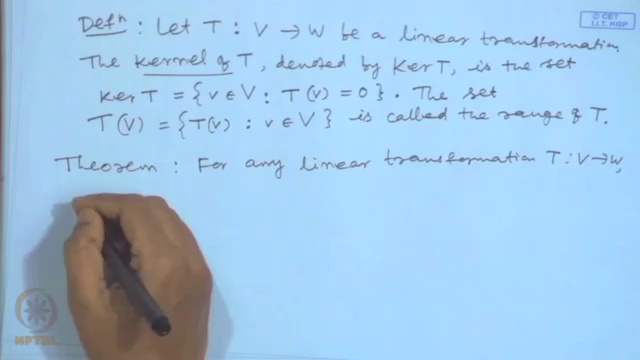 © CET
I.I.T. KGP
Defⁿ : Let T : V → W be a linear transformation
The Kernel of T, denoted by Ker T, is the set
Ker T = { v ∈ V : T(v) = 0 }. The set
T(V) = { T(v) : v ∈ V } is called the range of T.
Theorem : For any linear transformation T : V → W,
NPTEL